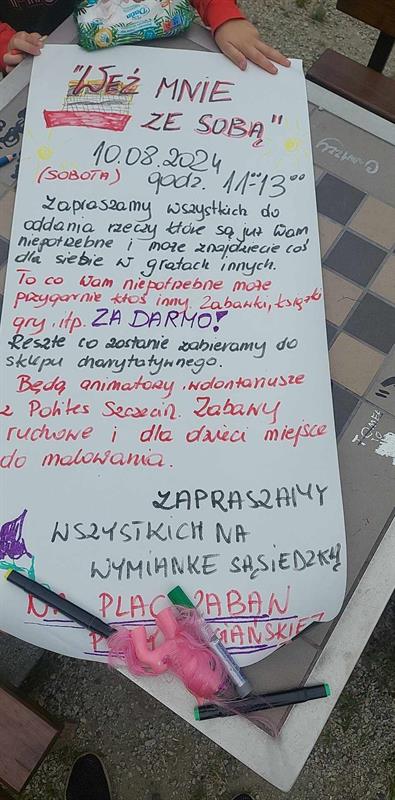 "WEŹ MNIE
ZE SOBĄ"
10.08.2024
(SOBOTA) godz. 11⁰⁰-13⁰⁰
Zapraszamy wszystkich do
oddania rzeczy które są już Wam
niepotrzebne i może znajdziecie coś
dla siebie w gratach innych.
To co Wam niepotrzebne może
przygarnie ktoś inny. Zabawki, książki
gry, itp. ZA DARMO!
Resztę co zostanie zabieramy do
sklepu charytatywnego.
Będą animatorzy, wolontariusze
z Polites Szczecin. Zabawy
ruchowe i dla dzieci miejsce
do malowania.
ZAPRASZAMY
WSZYSTKICH NA
WYMIANKE SĄSIEDZKĄ
NA PLAC ZABAW